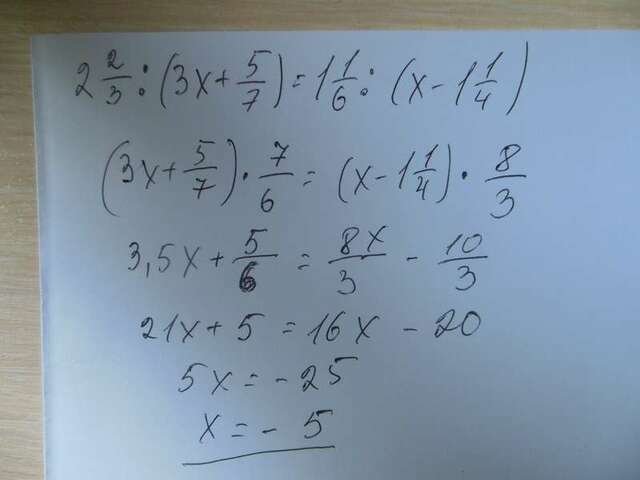 2 2/3 : (3x + 5/7) = 1 1/6 : (x - 1 1/4)
(3x + 5/7) · 7/6 = (x - 1 1/4) · 8/3
3,5x + 5/6 = 8x/3 - 10/3
21x + 5 = 16x - 20
5x = - 25
x = - 5